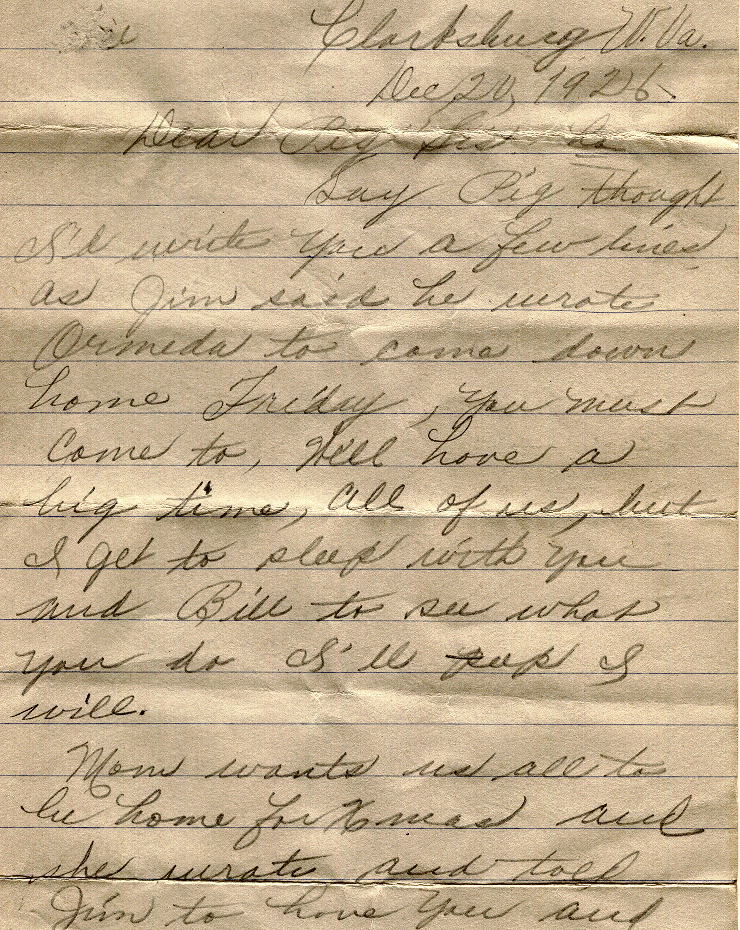 Clarksburg W. Va.
Dec 20, 1926.
Dear Big Sis
Say Pig thought
I'd write you a few lines
as Jim said he wrote
Ormeda to come down
home Friday, you must
come to, We'll have a
big time, all of us, but
I get to sleep with you
and Bill to see what
you do I'll peep I
will.
Mom wants us all to
be home for Xmas and
she wrote and told
Jim to have you and